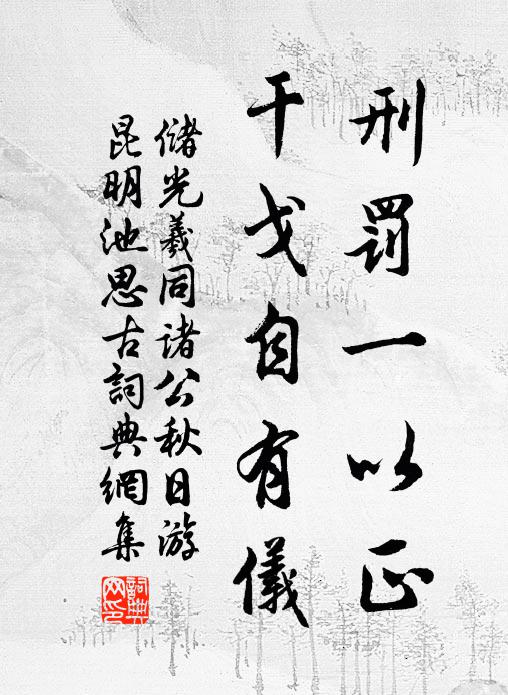 刑罰一以正
干戈自有儀
儲光羲同諸公秋日游
昆明池思古詞典網集